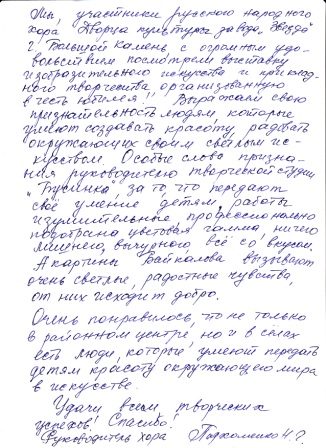 Мы, участники русского народного
хора Дворца культуры завода "Звезда"
г. Большой Камень, с огромным удо-
вольствием посмотрели выставку
изобразительного искусства и приклад-
ного творчества, организованную
в честь юбилея!! Выражаем свою
признательность людям, которые
умеют создавать красоту, радовать
окружающих своим светлым ис-
кусством. Особые слова призна-
ния руководителю творческой студии
"Бусинка", за то, что передают
своё умение детям, работы
изумительные, профессионально
подобрана цветовая гамма, ничего
лишнего, вычурного, всё со вкусом.
А картины Байкалова вызывают
очень светлые, радостные чувства,
от них исходит добро.
Очень понравилось, что не только
в районном центре, но и в сёлах
есть люди, которые умеют передать
детям красоту окружающего мира
в искусстве.
Удачи всем, творческих
успехов! Спасибо.
Руководитель хора